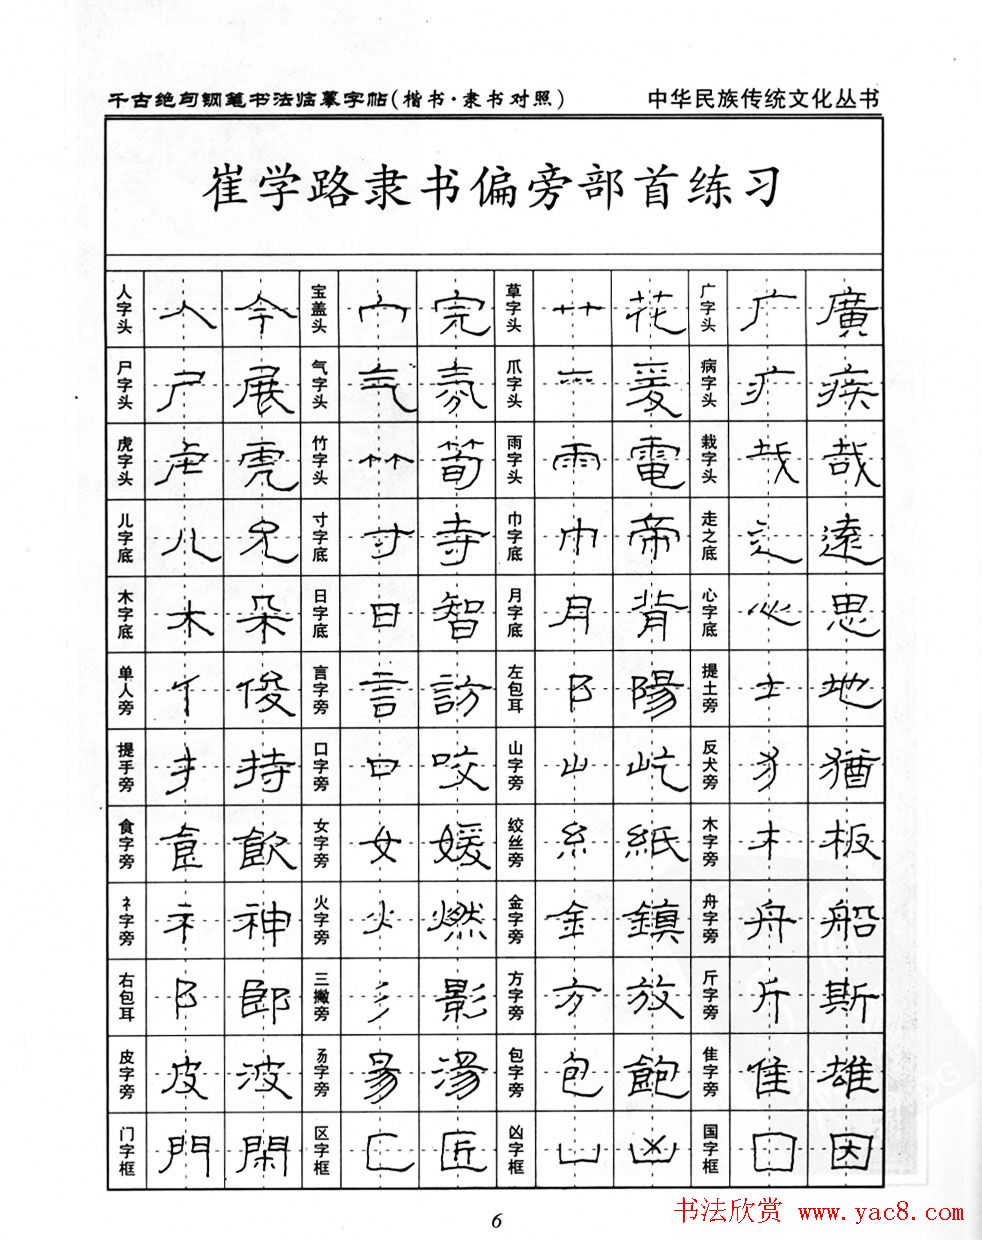 千古绝句钢笔书法临摹字帖(楷书·隶书对照) 中华民族传统文化丛书
崔学路隶书偏旁部首练习
人字头 人 今 宝盖头 宀 完 草字头 艹 花 广字头 广 廣
尸字头 尸 展 气字头 气 氛 爪字头 爫 爰 病字头 疒 疾
虎字头 虍 虎 竹字头 竹 筍 雨字头 雨 電 栽字头 𢦏 哉
儿字底 儿 兄 寸字底 寸 寺 巾字底 巾 帝 走之底 辶 遠
木字底 木 朵 日字底 日 智 月字底 月 背 心字底 心 思
单人旁 亻 俊 言字旁 言 訪 左包耳 阝 陽 提土旁 土 地
提手旁 扌 持 口字旁 口 咬 山字旁 山 屹 反犬旁 犭 猶
食字旁 食 飲 女字旁 女 媛 绞丝旁 糹 紙 木字旁 木 板
礻字旁 礻 神 火字旁 火 燃 金字旁 金 鎮 舟字旁 舟 船
右包耳 阝 郎 三撇旁 彡 影 方字旁 方 放 斤字旁 斤 斯
皮字旁 皮 波 昜字旁 昜 湯 包字旁 包 飽 隹字旁 隹 雄
门字框 門 閑 区字框 匚 匠 凶字框 凵 凶 国字框 囗 因
6
书法欣赏 www.yac8.com